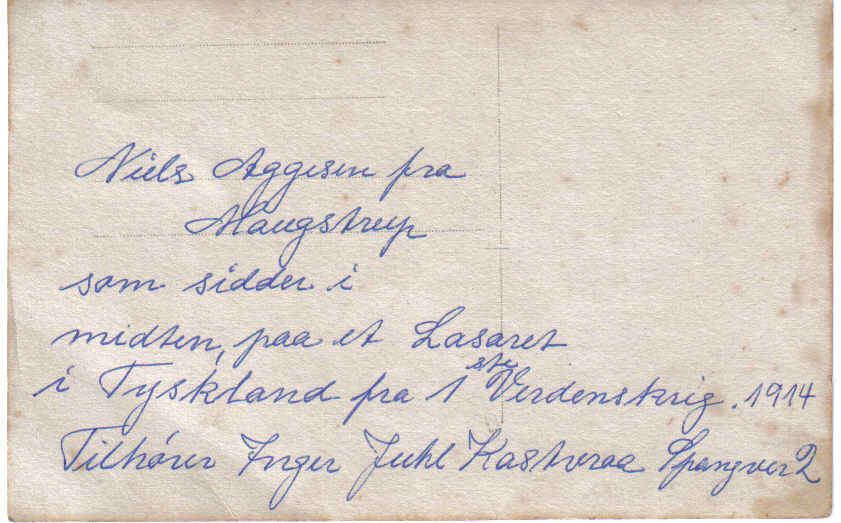 Niels Aggesen fra
Maugstrup
som sidder i
midten, paa et Lasaret
i Tyskland fra 1ste Verdenskrig. 1914
Tilhører Inger Juhl Kastvraa